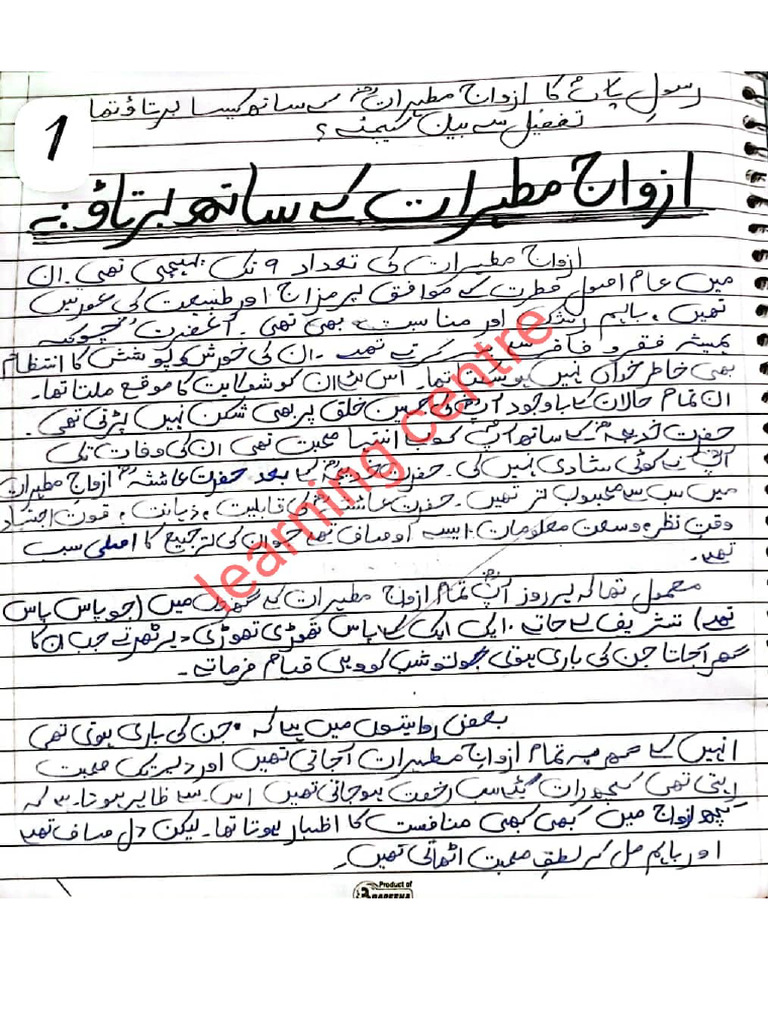 رسولِ پاکؐ کا ازواج مطہراتؓ کے ساتھ کیسا برتاؤ تھا
تفصیل سے بیان کیجئے؟
1
ازواج مطہرات کے ساتھ برتاؤ:
ازواج مطہرات کی تعداد ۹ تک پہنچی تھی۔ ان
میں عام اصول فطرت کے موافق ہر مزاج اور طبیعت کی عورتیں
تھیں، باہم رشک اور منافست بھی تھی۔ آنحضرتؐ چونکہ
ہمیشہ فقر و فاقہ سے بسر کرتے تھے۔ ان کی خورش و پوشش کا انتظام
بھی خاطر خواہ نہیں ہو سکتا تھا۔ اس لئے ان کو شکایت کا موقع ملتا تھا۔
ان تمام حالات کے باوجود آپؐ کی جبین خلق پر بھی شکن نہیں پڑتی تھی۔
حضرت خدیجہؓ کے ساتھ آپؐ کو بے انتہا محبت تھی ان کی وفات تک
آپؐ نے کوئی شادی نہیں کی۔ حضرت خدیجہؓ کے بعد حضرت عائشہؓ ازواج مطہرات
میں سب سے محبوب تر تھیں۔ حضرت عائشہؓ کی قابلیت، ذہانت، قوت اجتہاد
وقتِ نظر، وسعت معلومات، ایسے اوصاف تھے جو ان کی ترجیح کا اصلی سبب
تھے۔
معمول تھا کہ ہر روز آپؐ تمام ازواج مطہرات کے گھروں میں (جو پاس پاس
تھے) تشریف لے جاتے۔ ایک ایک کے پاس تھوڑی تھوڑی دیر ٹھہرتے جب ان کا
گھر آجاتا جن کی باری ہوتی تو شب کو وہیں قیام فرماتے۔
بعض روایتوں میں ہے کہ جن کی باری ہوتی تھی
انہیں کے گھر پہ تمام ازواج مطہرات آجاتی تھیں اور دیر تک صحبت
رہتی تھی کچھ رات گئے سب رخصت ہو جاتی تھیں اس سے ظاہر ہوتا ہے کہ
کچھ ازواج میں کبھی کبھی منافست کا اظہار ہوتا تھا۔ لیکن دل صاف تھے
اور باہم مل کر لطفِ صحبت اٹھاتی تھیں۔
learning centre
Product of